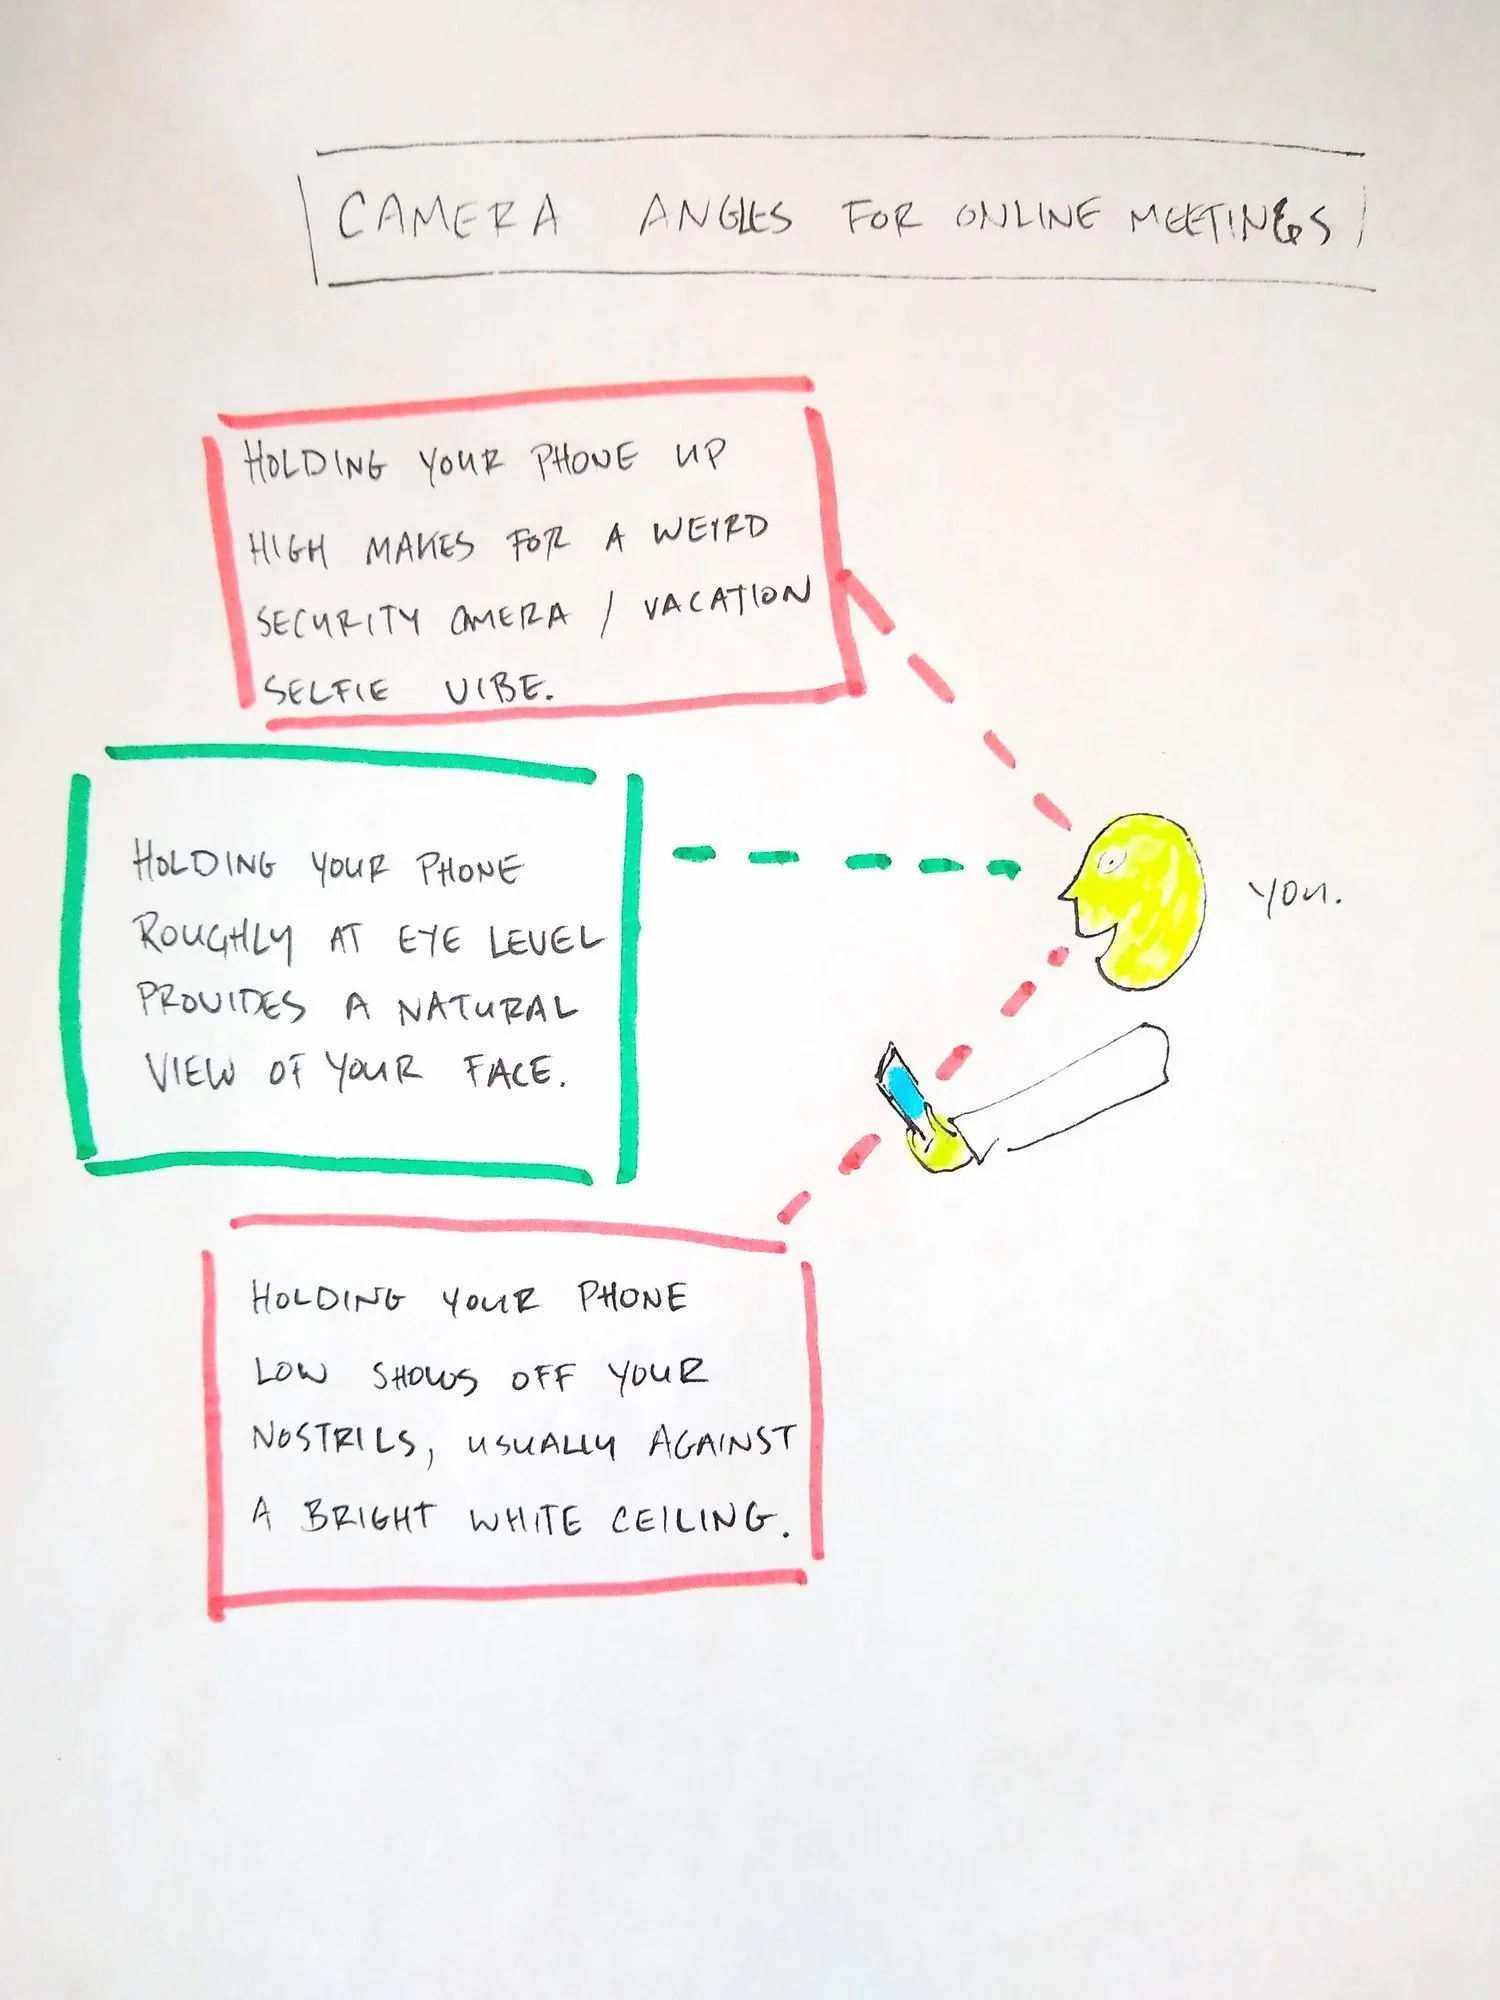 CAMERA ANGLES FOR ONLINE MEETINGS
HOLDING YOUR PHONE UP
HIGH MAKES FOR A WEIRD
SECURITY CAMERA / VACATION
SELFIE VIBE.
HOLDING YOUR PHONE
ROUGHLY AT EYE LEVEL
PROVIDES A NATURAL
VIEW OF YOUR FACE.
YOU.
HOLDING YOUR PHONE
LOW SHOWS OFF YOUR
NOSTRILS, USUALLY AGAINST
A BRIGHT WHITE CEILING.